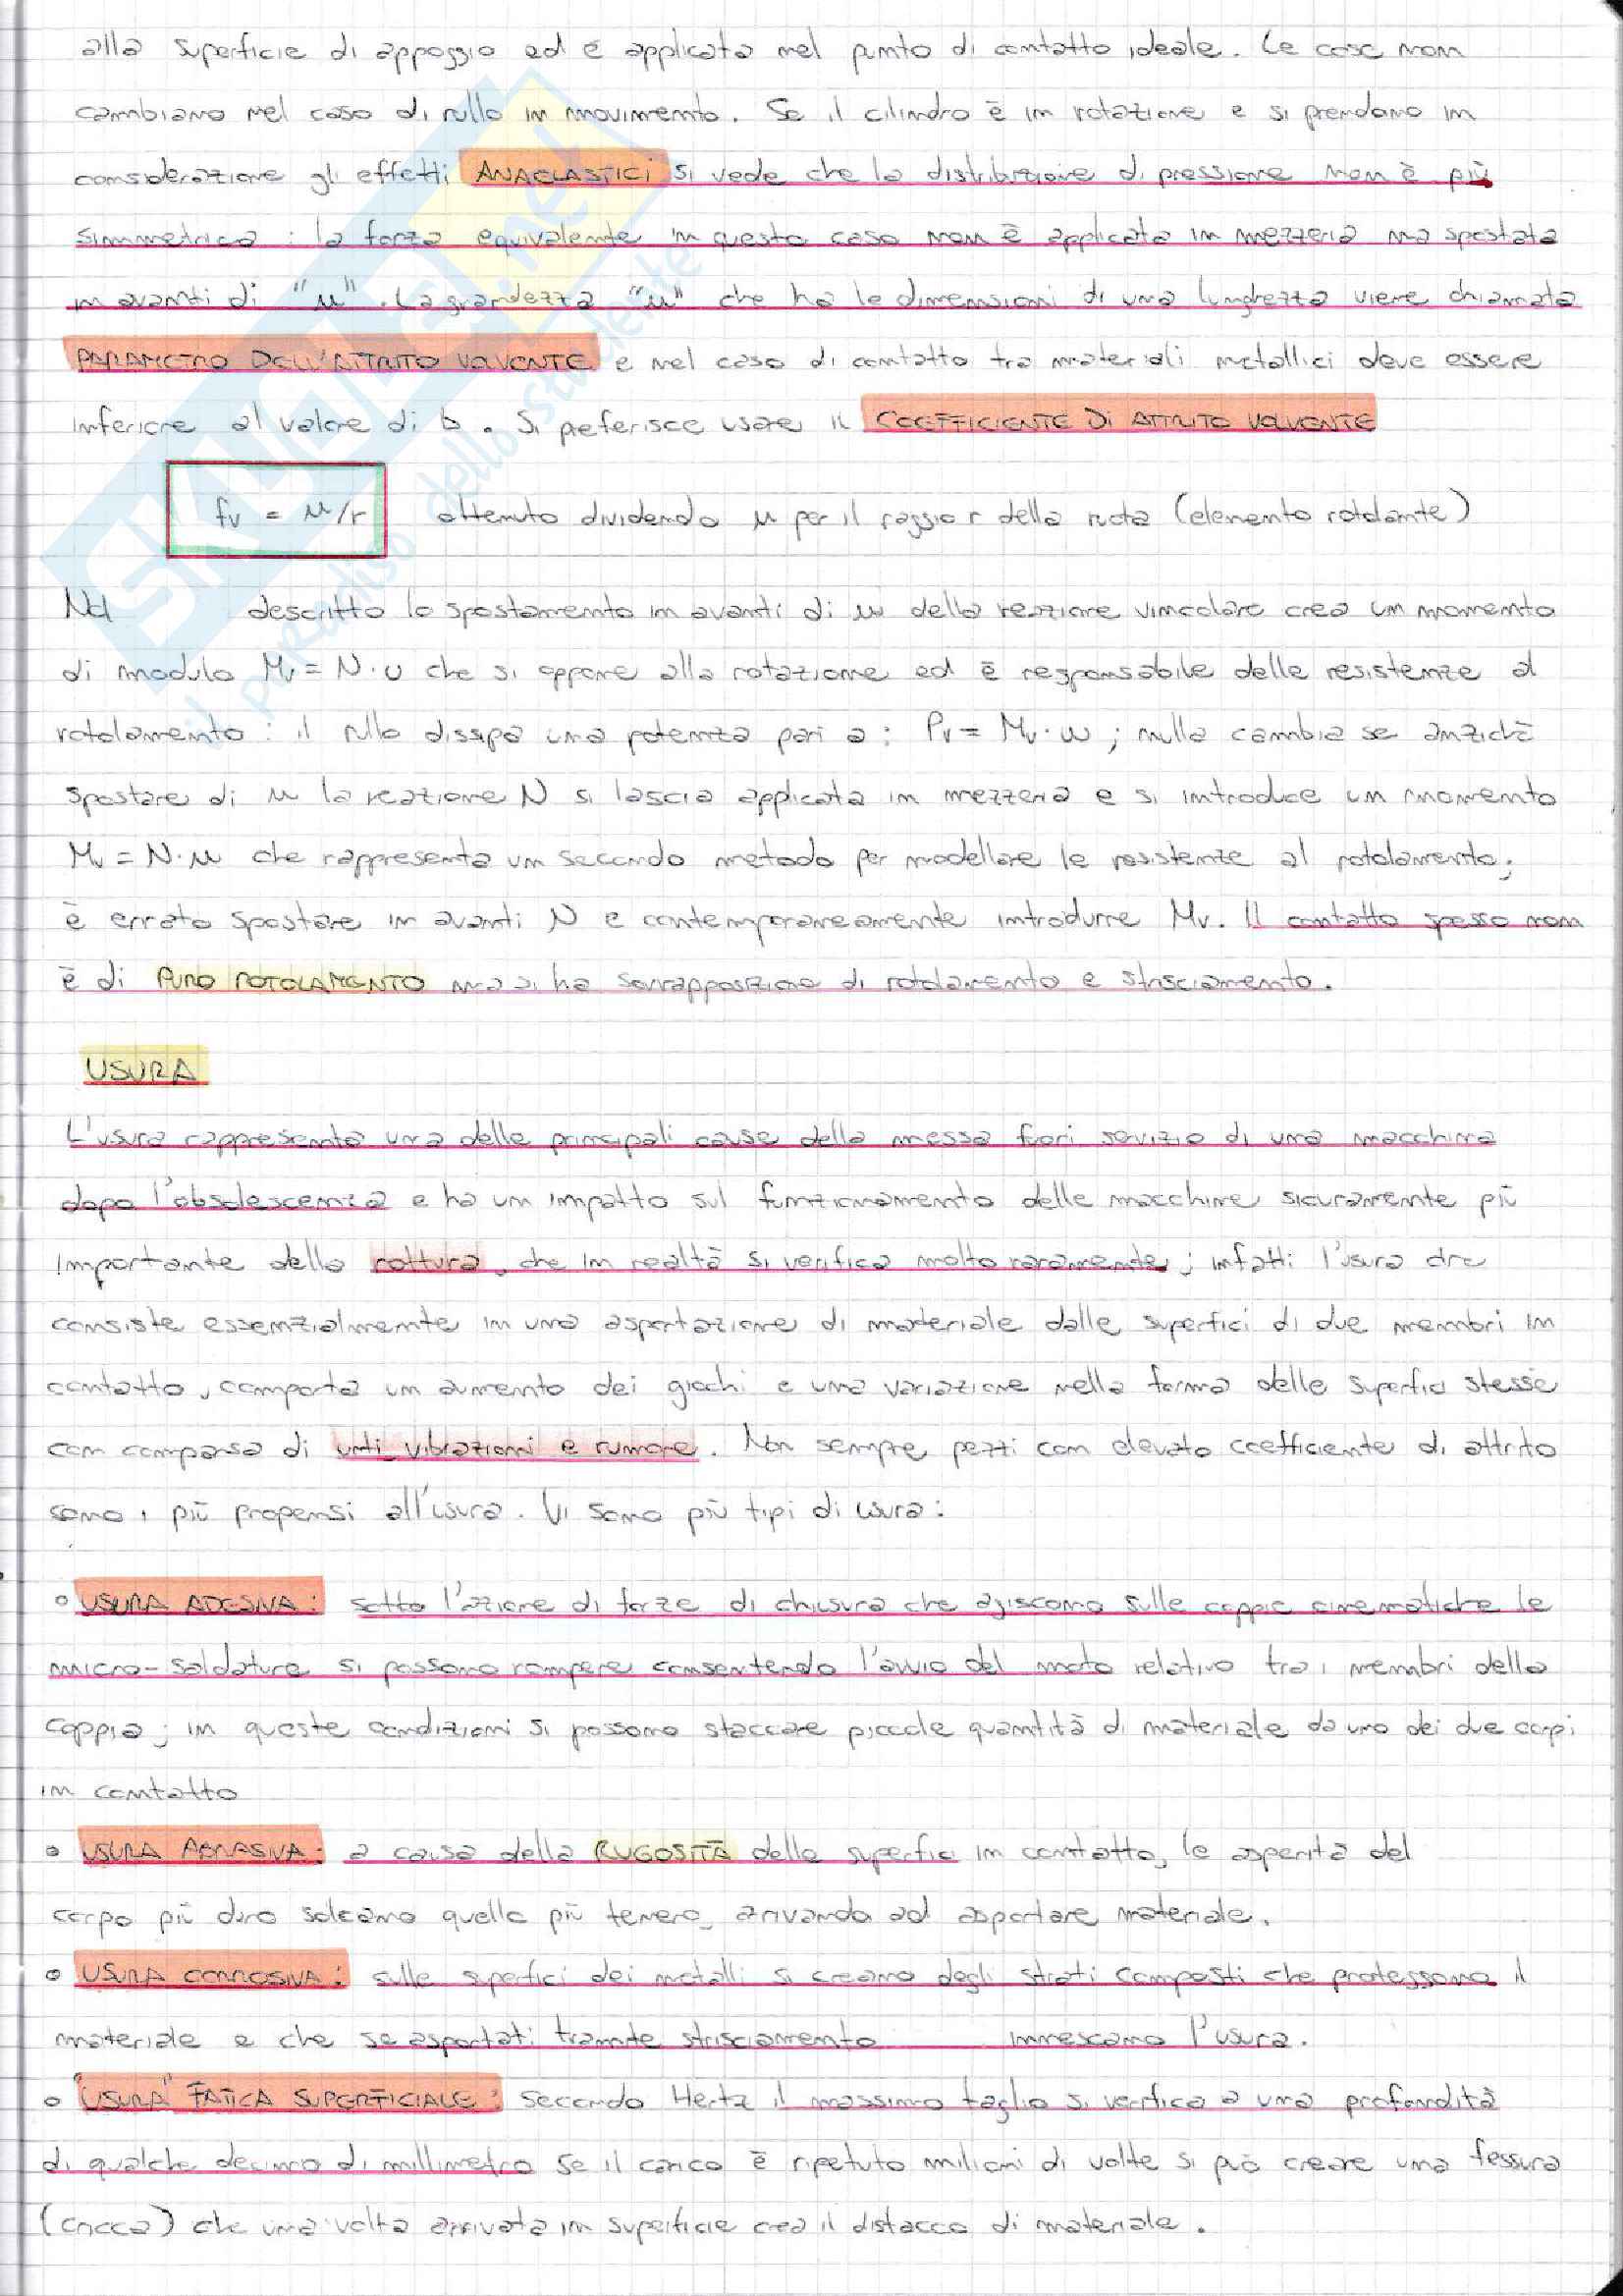 alla superficie di appoggio ed è applicata nel punto di contatto ideale. Le cose non
cambiano nel caso di rullo in movimento. Se il cilindro è in rotazione e si prendono in
considerazione gli effetti ANAELASTICI si vede che la distribuzione di pressione non è più
simmetrica : la forza equivalente in questo caso non è applicata in mezzeria ma spostata
in avanti di "u". La grandezza "u" che ha le dimensioni di una lunghezza viene chiamata
PARAMETRO DELL'ATTRITO VOLVENTE e nel caso di contatto tra materiali metallici deve essere
inferiore al valore di b. Si preferisce usare il COEFFICIENTE DI ATTRITO VOLVENTE
fv = u/r ottenuto dividendo u per il raggio r della ruota (elemento rotolante)
Nel descritto lo spostamento in avanti di u della reazione vincolare crea un momento
di modulo Mv = N·u che si oppone alla rotazione ed è responsabile delle resistenze al
rotolamento : il rullo dissipa una potenza pari a : Pv = Mv·ω ; nulla cambia se anziché
spostare di u la reazione N si lascia applicata in mezzeria e si introduce un momento
Mv = N·u che rappresenta un secondo metodo per modellare le resistenze al rotolamento;
è errato spostare in avanti N e contemporaneamente introdurre Mv. Il contatto spesso non
è di PURO ROTOLAMENTO ma si ha sovrapposizione di rotolamento e strisciamento.
USURA
L'usura rappresenta una delle principali cause della messa fuori servizio di una macchina
dopo l'obsolescenza e ha un impatto sul funzionamento delle macchine sicuramente più
importante della rottura, che in realtà si verifica molto raramente; infatti l'usura che
consiste essenzialmente in una asportazione di materiale dalle superfici di due membri in
contatto, comporta un aumento dei giochi e una variazione nella forma delle superfici stesse
con comparsa di urti, vibrazioni e rumore. Non sempre pezzi con elevato coefficiente di attrito
sono i più propensi all'usura. Vi sono più tipi di usura:
° USURA ADESIVA: sotto l'azione di forze di chiusura che agiscono sulle coppie cinematiche le
micro-saldature si possono rompere consentendo l'avvio del moto relativo tra i membri della
coppia; in queste condizioni si possono staccare piccole quantità di materiale da uno dei due corpi
in contatto
° USURA ABRASIVA: a causa della RUGOSITÀ delle superfici in contatto, le asperità del
corpo più duro solcano quello più tenero, arrivando ad asportare materiale.
° USURA CORROSIVA: sulle superfici dei metalli si creano degli strati composti che proteggono il
materiale e che se asportati tramite strisciamento innescano l'usura.
° "USURA" FATICA SUPERFICIALE: secondo Hertz il massimo taglio si verifica a una profondità
di qualche decimo di millimetro se il carico è ripetuto milioni di volte si può creare una fessura
(cricca) che una volta arrivata in superficie crea il distacco di materiale.
SKUOLA.net
il paradiso dello studente